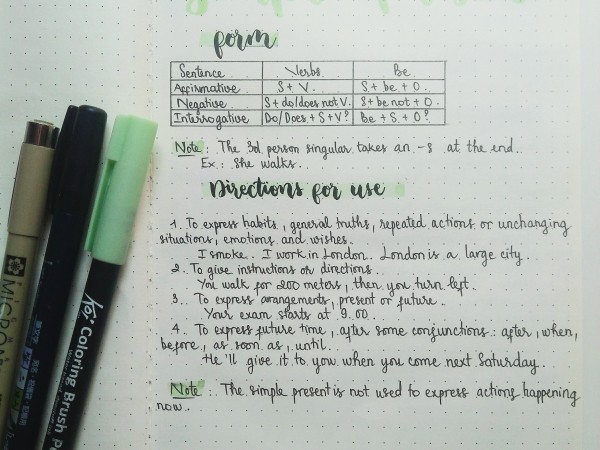 form
Sentence Verbs Be
Affirmative S + V. S + be + O.
Negative S + do/does not V. S + be not + O.
Interrogative Do/Does + S + V? Be + S + O?
Note: The 3d person singular takes an -s at the end.
Ex.: She walks.
Directions for use
1. To express habits, general truths, repeated actions or unchanging
situations, emotions and wishes.
I smoke. I work in London. London is a large city.
2. To give instructions or directions.
You walk for 200 meters, then you turn left.
3. To express arrangements, present or future.
Your exam starts at 9.00.
4. To express future time, after some conjunctions: after, when,
before, as soon as, until.
He'll give it to you when you come next Saturday.
Note: The simple present is not used to express actions happening
now.
MICRON
Coloring Brush